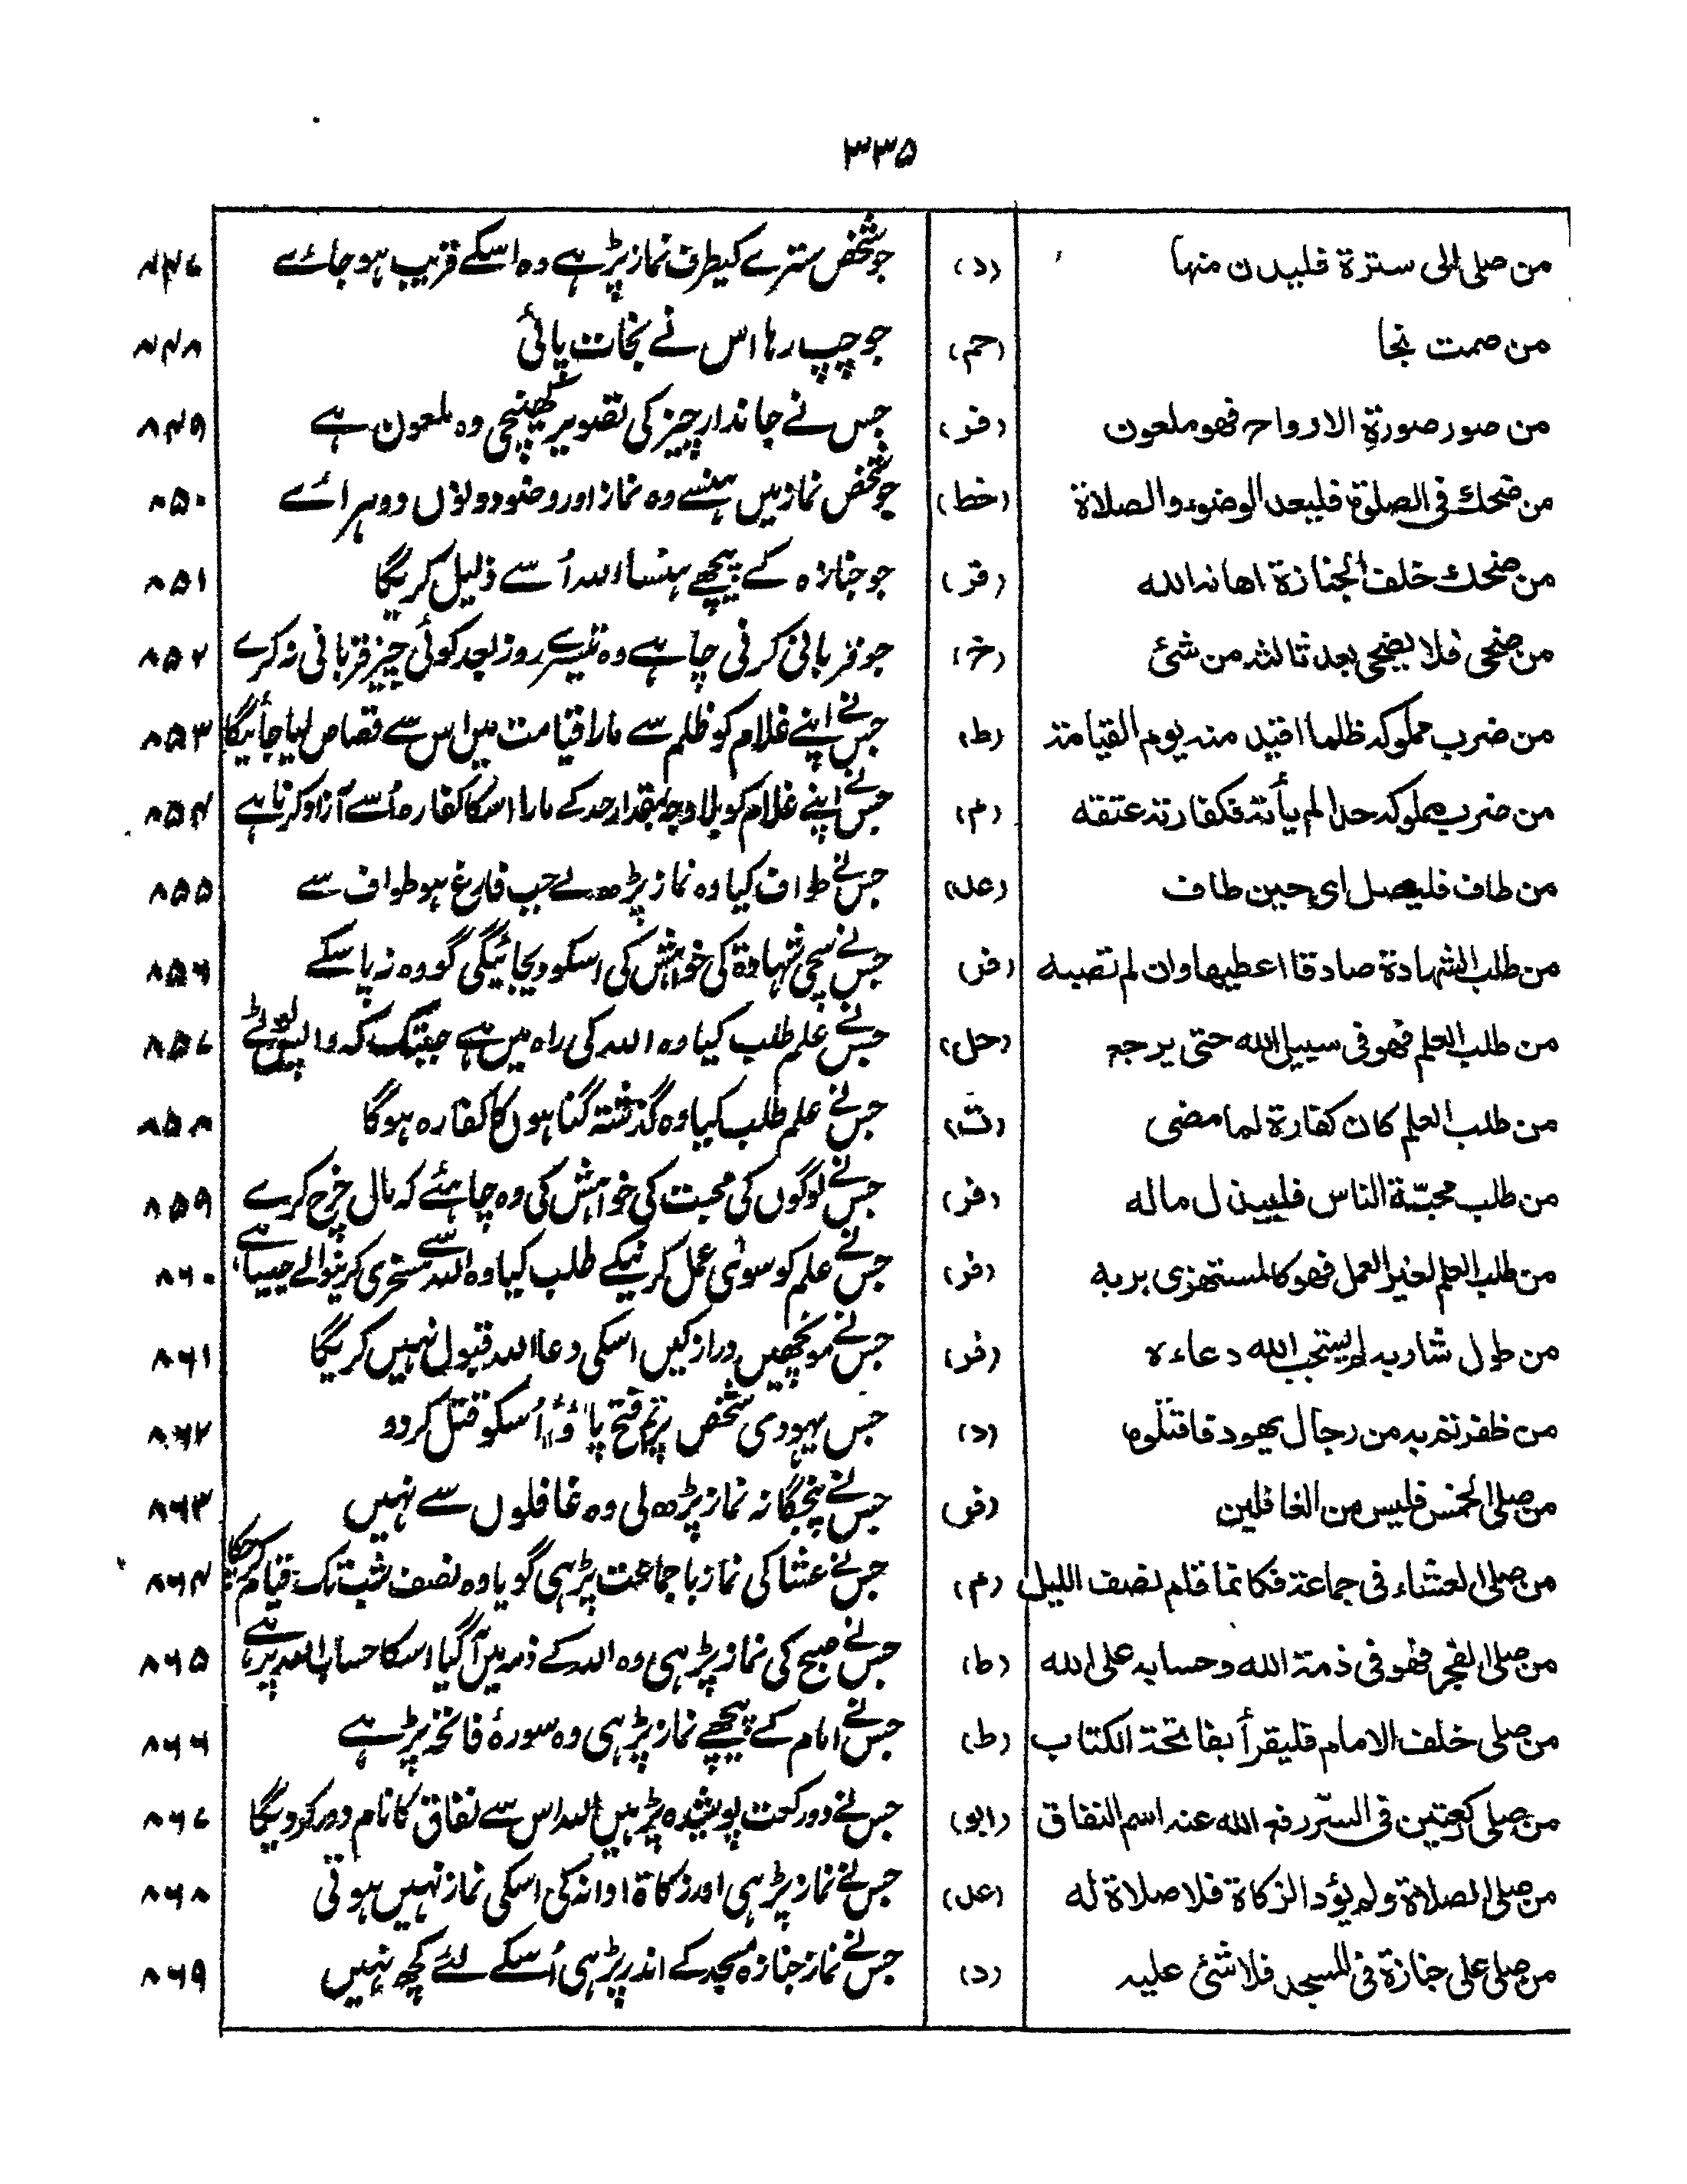 ۳۳۵
من صلی الی سترة فلیدن منها (د) جو شخص سترے کیطرف نماز پڑہے وہ اسکے قریب ہو جائے ۸۴۷
من صمت نجا (حم) جو چپ رہا اس نے نجات پائی ۸۴۸
من صور صورة الارواح فهو ملعون (فر) جس نے جاندار چیز کی تصویر کھینچی وہ ملعون ہے ۸۴۹
من ضحك فی الصلوة فلیعد الوضوء والصلاة (خط) جو شخص نماز میں ہنسے وہ نماز اور وضو دونوں دوہرائے ۸۵۰
من ضحك خلف الجنازة اهانه الله (فر) جو جنازہ کے پیچھے ہنسا اللہ اُسے ذلیل کریگا ۸۵۱
من ضحی فلا یضحی بعد ثالثه من شئ (خ) جو قربانی کرنی چاہے وہ تیسرے روز بعد کوئی چیز قربانی نہ کرے ۸۵۲
من ضرب مملوکه ظلما اقید منه یوم القیامة (ط) جس نے اپنے غلام کو ظلم سے مارا قیامت میں اس سے قصاص لیا جائیگا ۸۵۳
من ضرب مملوکه حدا لم یأته فکفارته عتقه (م) جس نے اپنے غلام کو بلا وجہ بمقدار حد کے مارا اسکا کفارہ اُسے آزاد کرنا ہے ۸۵۴
من طاف فلیصل ای حین طاف (عد) جس نے طواف کیا وہ نماز پڑھ لے جب فارغ ہو طواف سے ۸۵۵
من طلب الشهادة صادقا اعطیها وان لم تصبه (فر) جس نے سچی شہادة کی خواہش کی اسکو دیجائیگی گو وہ نہ پا سکے ۸۵۶
من طلب العلم فهو فی سبیل الله حتی یرجع (حل) جس نے علم طلب کیا وہ اللہ کی راہ میں ہے جبتک کہ واپس لوٹے ۸۵۷
من طلب العلم کان کفارة لما مضی (ت) جس نے علم طلب کیا وہ گذشتہ گناہوں کا کفارہ ہوگا ۸۵۸
من طلب محبّة الناس فلیبذل ماله (فر) جس نے لوگوں کی محبت کی خواہش کی وہ چاہئے کہ مال خرچ کرے ۸۵۹
من طلب العلم لغیر العمل فهو کالمستهزی بربه (فر) جس نے علم کو سوئی عمل کرنیکے طلب کیا وہ اللہ سے مسخری کرینوالے جیسا ہے ۸۶۰
من طول شاربه لم یستجب الله دعاءه (فر) جس نے مونچھیں دراز کیں اسکی دعا اللہ قبول نہیں کریگا ۸۶۱
من ظفرتم به من رجال یهود فاقتلوه (د) جس یہودی شخص پر تم فتح پاؤ اُسکو قتل کر دو ۸۶۲
من صلی الخمس فلیس من الغافلین (فر) جس نے پنجگانہ نماز پڑھ لی وہ غافلوں سے نہیں ۸۶۳
من صلی العشاء فی جماعة فکانما قام نصف اللیل (م) جس نے عشا کی نماز با جماعت پڑہی گویا وہ نصف شب تک قیام کر چکا ۸۶۴
من صلی الفجر فهو فی ذمة الله وحسابه علی الله (ط) جس نے صبح کی نماز پڑہی وہ اللہ کے ذمہ میں آگیا اسکا حساب اللہ پر ہے ۸۶۵
من صلی خلف الامام فلیقرأ بفاتحة الکتاب (ط) جس نے امام کے پیچھے نماز پڑہی وہ سورۂ فاتحہ پڑہے ۸۶۶
من صلی رکعتین فی السّر رفع الله عنه اسم النفاق (ابو) جس نے دو رکعت پوشیدہ پڑہیں اللہ اس سے نفاق کا نام دور کر دیگا ۸۶۷
من صلی الصلاة ولم یؤد الزکاة فلا صلاة له (عد) جس نے نماز پڑہی اور زکاة ادا نہ کی اسکی نماز نہیں ہوتی ۸۶۸
من صلی علی جنازة فی المسجد فلا شئ علیه (د) جس نے نماز جنازہ مسجد کے اندر پڑہی اُسکے لئے کچھ نہیں ۸۶۹